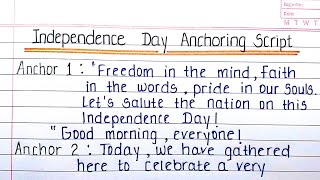 Independence Day Anchoring Script
M T W T
Anchor 1 : "Freedom in the mind, Faith
in the words, pride in our souls.
Let's salute the nation on this
Independence Day!
"Good morning, everyone!
Anchor 2 : Today, we have gathered
here to celebrate a very